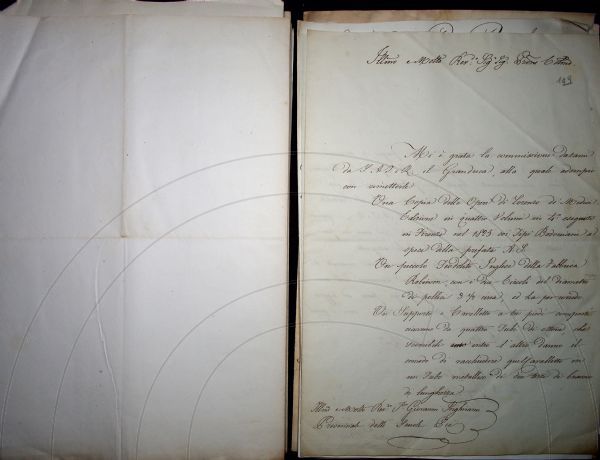 Illmo e Molto Rev.º Sig.
199
Mi è grata la commissione datami
da S. A. I. e R. il Granduca, alla quale adempio
con rimetterle
Una Copia delle Opere di Lorenzo de Medici
in quattro Volumi in 4º eseguita
in Firenze nel 1825 coi Tipi Bodoniani a
spese della prefata A. S.
Un piccolo Teodolite Inglese della fabbrica
Robinson, con i due Circoli del diametro
di pollici 3 ½ uno, ed
Un Supporto o Cavalletto a tre piedi composti
ciascuno da quattro Tubi di ottone che
entro l'altro danno il
comodo di racchiudere quel Cavalletto in
un Tubo metallico di due terzi di braccio
di lunghezza.
Illmo e Molto Revº Pº Giovanni Inghirami
Provinciale delle Scuole Pie